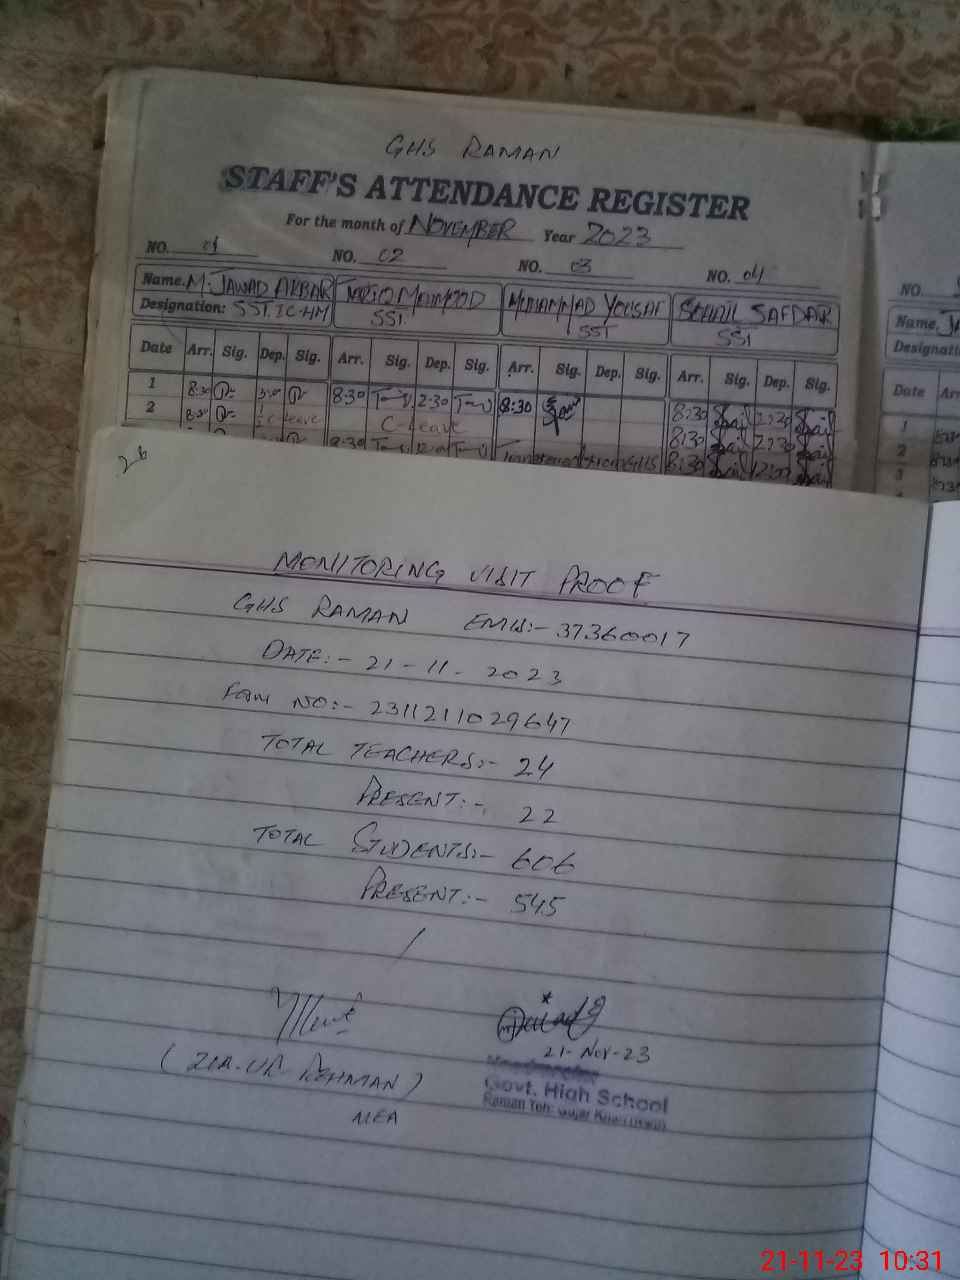 GHS RAMAN
STAFF'S ATTENDANCE REGISTER
For the month of NOVEMBER Year 2023
NO. 01 NO. 02 NO. 03 NO. 04 NO.
Name. M. JAWAD AKBAR TARIQ MAHMOOD MUHAMMAD YOUSAF SOHAIL SAFDAR Name.
Designation: SST. IC-HM SST. SST SST
Date Arr. Sig. Dep. Sig. Arr. Sig. Dep. Sig. Arr. Sig. Dep. Sig. Arr. Sig. Dep. Sig. Date
1 8:30 8:30 2:30 8:30 8:30 2:30 1
2 8:30 C-leave C-leave 8:30 2:30 2
8:30 Transferred from GHS 8:30 3
MONITORING VISIT PROOF
GHS RAMAN EMIS:- 37360017
DATE:- 21-11-2023
FORM NO:- 2311211029647
TOTAL TEACHERS:- 24
PRESENT:- 22
TOTAL STUDENTS:- 606
PRESENT:- 545
21-Nov-23
(ZIA-UR REHMAN)
Govt. High School
MEA
Raman Teh: Gujar Khan
21-11-23 10:31